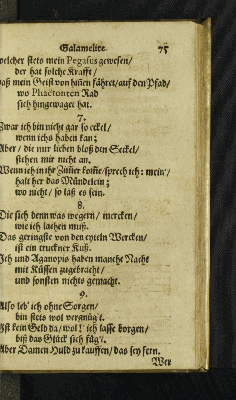 Galamelite. 75
welcher stets mein Pegasus gewesen/
der hat solche Krafft/
daß mein Geist von hiñen fähret/auf den Pfad/
wo Phaëtonten Rad
sich hingewaget hat.
7.
Zwar ich bin nicht gar so eckel/
wenn ichs haben kan;
Aber/ die nur lieben bloß den Seckel/
stehen mir nicht an.
Wenn ich in ihr Zim̃er kom̃e/sprech ich: mein/
halt her das Mündelein;
wo nicht/ so laß es sein.
8.
Die sich denn was wegern/ mercken/
wie ich lachen muß.
Das geringste von den eyteln Wercken/
ist ein truckner Kuß.
Ich und Aganopis haben manche Nacht
mit Küssen zugebracht/
und sonsten nichts gemacht.
9.
Also leb' ich ohne Sorgen/
bin stets wol vergnüg't.
Ist kein Geld da/ wol! ich lasse borgen/
biß das Glück sich füg't.
Aber Damen Huld zu kauffen/ das sey fern.
Wer